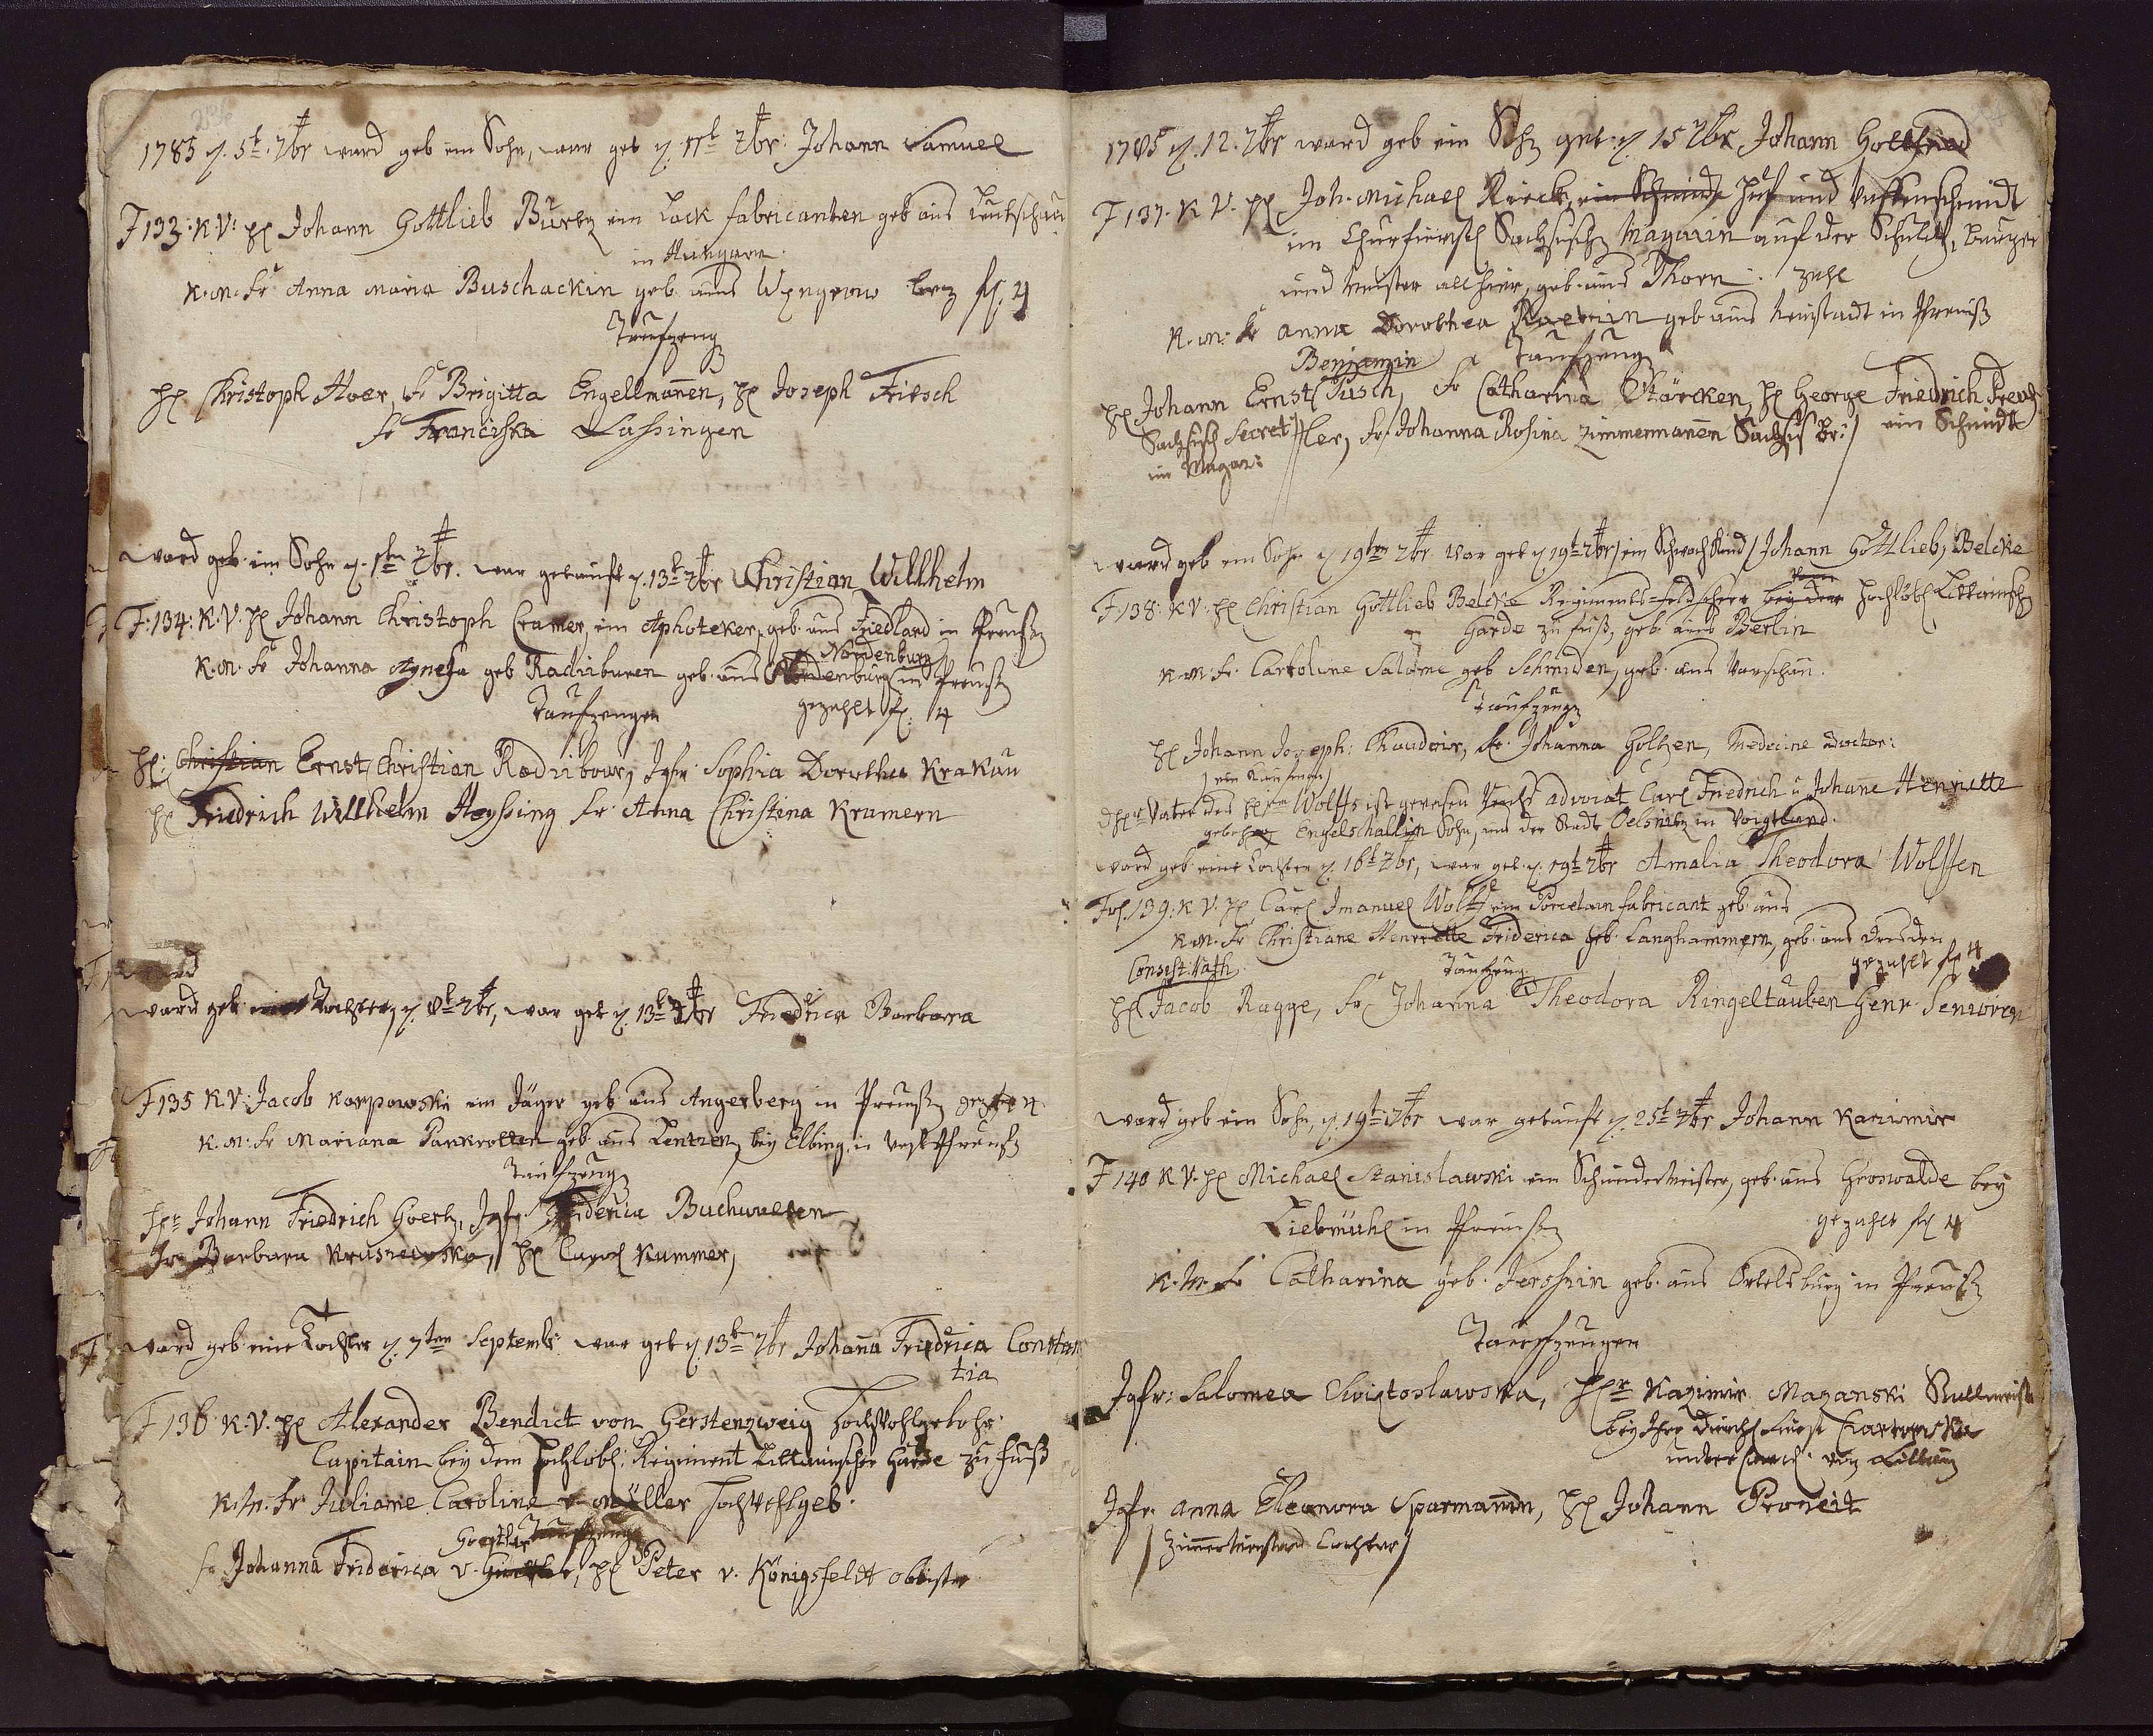 1785 d. 5t. 7br ward geb ein Sohn, war get d. 11t 7br. Johann Samuel
F 133: K.V: H Johann Gottlieb Burtz ein Lack fabricanten geb aus Leutschau
in Hungarn.
K.M. Fr Anna Maria Buschackin geb. aus Wengrow bez fl. 4
Taufzeug
H Christoph Hoer, Fr Brigitta Engellmanen, H Joseph Fitsch
Fr Franciska Lassingen
ward geb. ein Sohn d. 1ten 7br. war getauft d. 13t 7br Christian Willhelm
F. 134: K.V. H Johann Christoph Cramer, ein Aphoteker, geb. aus Friedland in Preussen
Nordenburg
K.M. Fr Johanna Agnesa geb Radziburen geb. aus in Preuss
Taufzeugen gezahlt fl. 4
H: Christian Ernst Christian Radzibour, Jgfr Sophia Dorothea Krakau
H Friedrich Willhelm Heyssing Fr. Anna Christina Kramern
ward
ward geb eine Tochter, d. 8t 7br, war get d. 13t 7br Friedrica Barbara
F 135 K.V: Jacob Karpowski ein Jäger geb aus Angerberg in Preussen gez fl 4
K.M: Fr Mariana Pankratten geb. aus Lentzen bey Elbing in West Preuss
Taufzeug
Hr Johann Friedrich Goertz, Jgfr Friderica Buchwalten
Fr Barbara Krusnewska, H Carol Kummer,
ward geb. eine Tochter d. 7ten Septemb: war get d. 13t 7br Johana Friedrica Constan
tia
F 136 K.V. H Alexander Bendict von Gerstenzweig Hochwohlgebohr.
Capitain bey dem Hochlobl: Regiment Littauischer Garde zu fuss
K.M. Fr Juliane Caroline v. Müller Hochwohlgeb.
Taufzeuge
Fr Johanna Friderica v. H Peter v. Königsfeldt obrister
1785 d. 12. 7br ward geb ein Sohn get. d. 15 7br Johann Gottfried
F 137. K.V. H Joh. Michael Rieck, ein Schmidt Huf und Waffenschmidt
im Churfürstl Sachsisch Magazin auf der Schultz, Burger
und Meister allhier, geb. aus Thorn. zahl
K.M: Fr Anna Dorothea geb aus Neustadt in Preuss
Benjamin Taufzeug
H Johann Ernst Tusch, Fr Catharina Störcken, H George Friedrich
Sachsisch Secret ler, Fr Johanna Rosina Zimmermanen ein Schmidt
im Magaz:
ward geb ein Sohn d 19ten 7br war get d 19t 7br / ein Schwach Kind / Johann Gottlieb, Belcke
F 138: K.V: H Christian Gottlieb Belcke Regiments=feldscherer bey der Hochlöbl Littauisch
Garde zu fuss, geb. aus Berlin
K.M: Fr. Carroline Salome geb Schmiden, geb. aus Warschau.
Taufzeug
H Johann Joseph: Fr. Johanna Goltzen, Medecine Doctor:
/ ein Kaufman /
Vater des Hrn Wolffs ist gewesen advocat Carl Friedrich u Johane Henriette
geboh Engelschallin Sohn, aus der Stadt Oelsnitz in Voigtland.
ward geb eine Tochter d. 16t 7br, war get. d. 19t 7br Amalia Theodora Wolffen
Fol. 139: K.V. H Carl Imanuel Wolff ein Porcelain fabricant geb. aus
K.M. Fr Christiane Henriette Friderica geb. Langhammern, geb. aus Dresden
Consist. Rath. Taufzeug gezahlt fl 4
H Jacob Ragge, Fr Johanna Theodora Ringeltauben
ward geb ein Sohn, d. 19t 7br war getauft d. 25t 7br Johann Kazimir
F 140 K.V. H Michael Stanislawski ein Schneidermeister, geb. aus Groswalde bey
Liebmühl in Preussen gezahlt fl 4
K.M. Fr Catharina geb. aus Ortelsburg in Preuss
Taufzeugen
Jgfr: Salomea Hr Kazimir Mazanski Stallmeist
bey Ihro Durchl Fürst Czartoryski
von Littauen
Jgfr. Anna Eleonora Sparmann, H Johann Proteit
/ Zimermeisters Tochter /